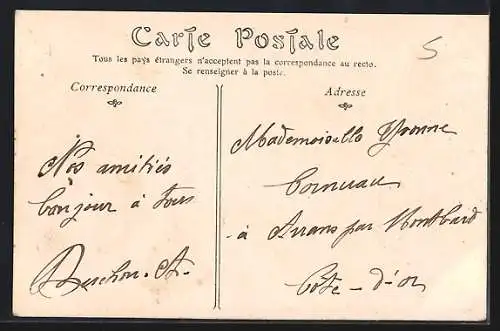 Carte Postale
5
Tous les pays étrangers n'acceptent pas la correspondance au recto.
Se renseigner à la poste.
Correspondance
Adresse
Nos amitiés
bonjour à Tous
Mademoiselle Yvonne
à Arrans par Montbard
Côte-d'or